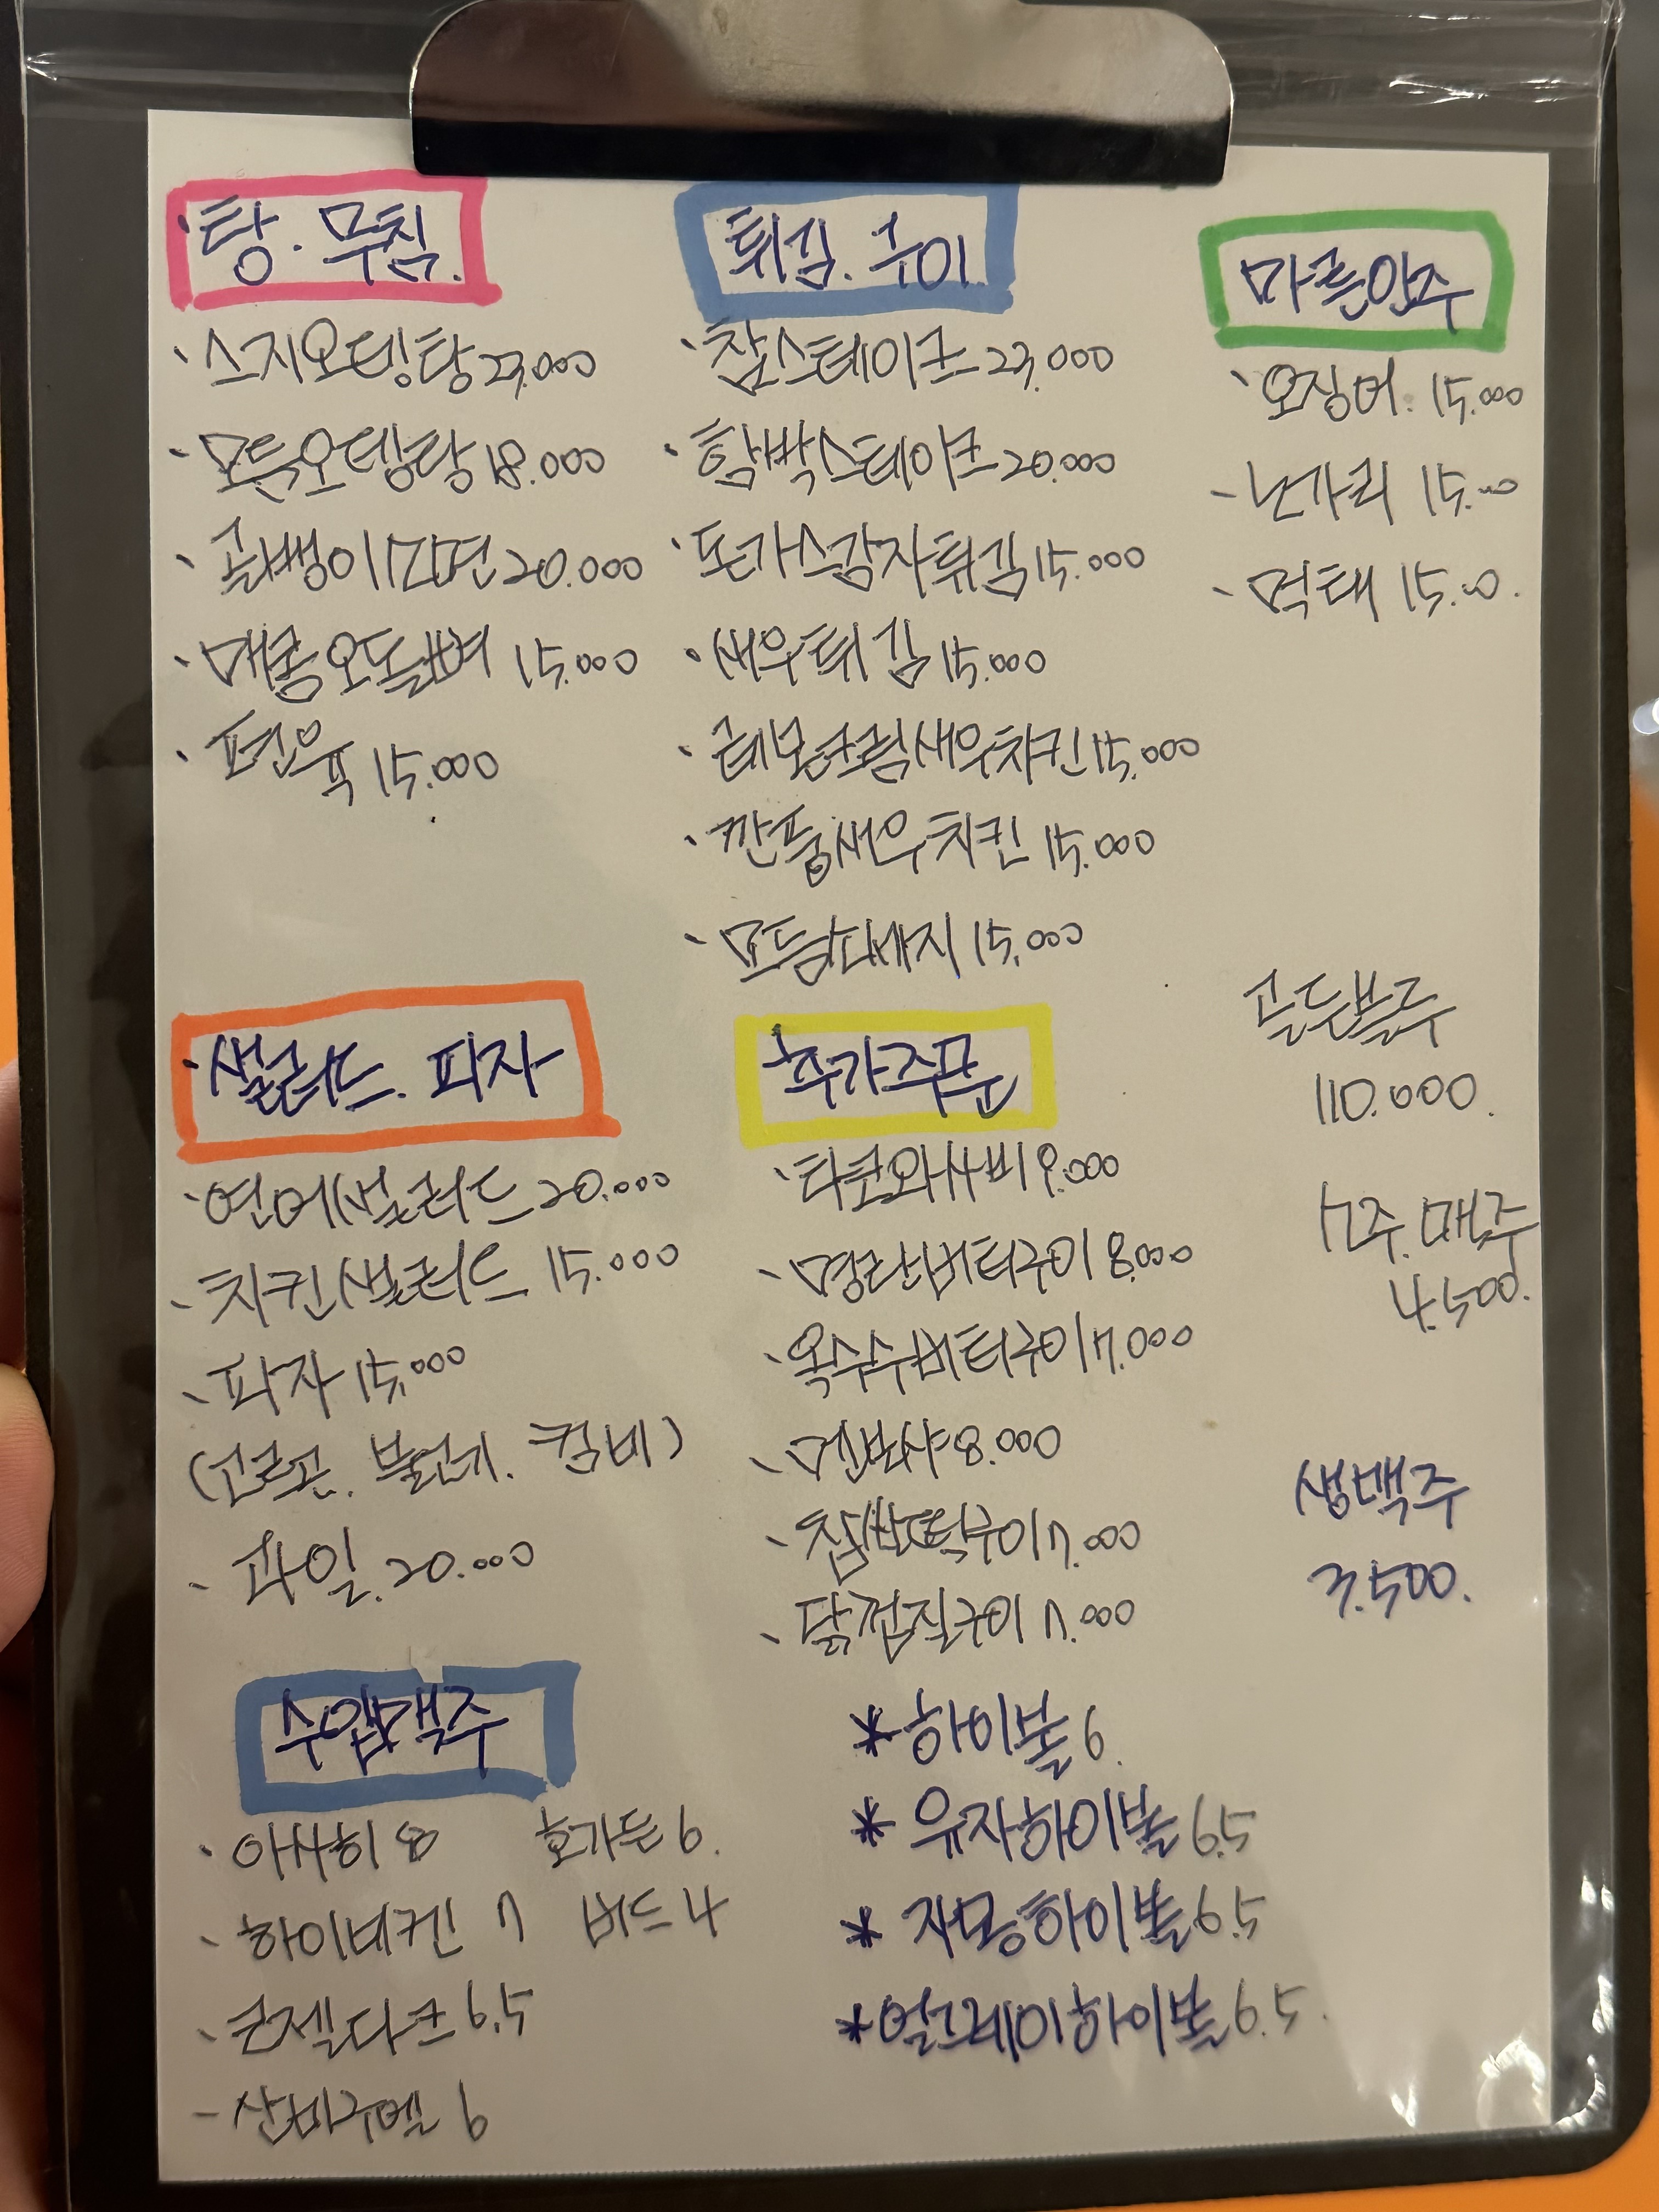 탕. 무침.
스지오뎅탕 23,000
모듬오뎅탕 18.000
골뱅이소면 20.000
매콤오돌뼈 15.000
편육 15.000
튀김. 구이
찹스테이크 23.000
함박스테이크 20.000
돈가스감자튀김 15.000
새우튀김 15.000
레몬크림새우치킨 15.000
깐풍새우치킨 15.000
모듬소세지 15.000
마른안주
오징어. 15.000
노가리 15.00
먹태 15.00.
샐러드. 피자
연어샐러드 20.000
치킨샐러드 15.000
피자 15,000
(고르곤. 불고기. 콤비)
과일. 20.000
추가주문
타코와사비 9.000
명란버터구이 8.000
옥수수버터구이 7.000
멘보샤 8.000
찹쌀떡구이 7.000
닭껍질구이 7.000
골든블루
110.000.
소주. 맥주
4.500.
생맥주
3.500.
수입맥주
아사히 8 호가든 6.
하이네켄 7 버드 4
코젤다크 6.5
산미구엘 6
* 하이볼 6.
* 유자하이볼 6.5
* 자몽하이볼 6.5
* 얼그레이하이볼 6.5.